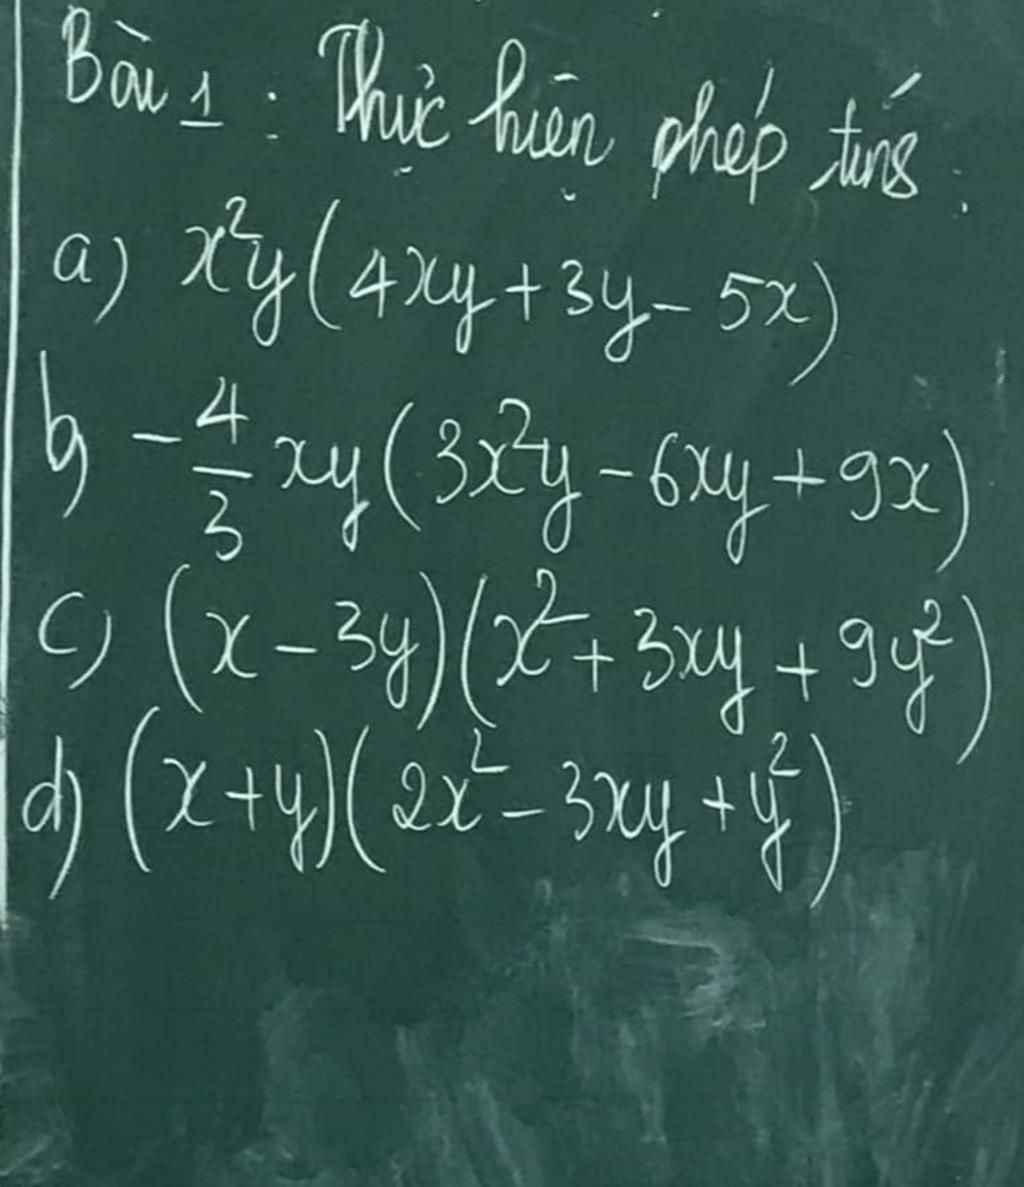 Bài 1 : Thực hiện phép tính :
a) x²y(4xy + 3y - 5x)
b) -4/3 xy(3x²y - 6xy + 9x)
c) (x - 3y)(x² + 3xy + 9y²)
d) (x + y)(2x² - 3xy + y²)